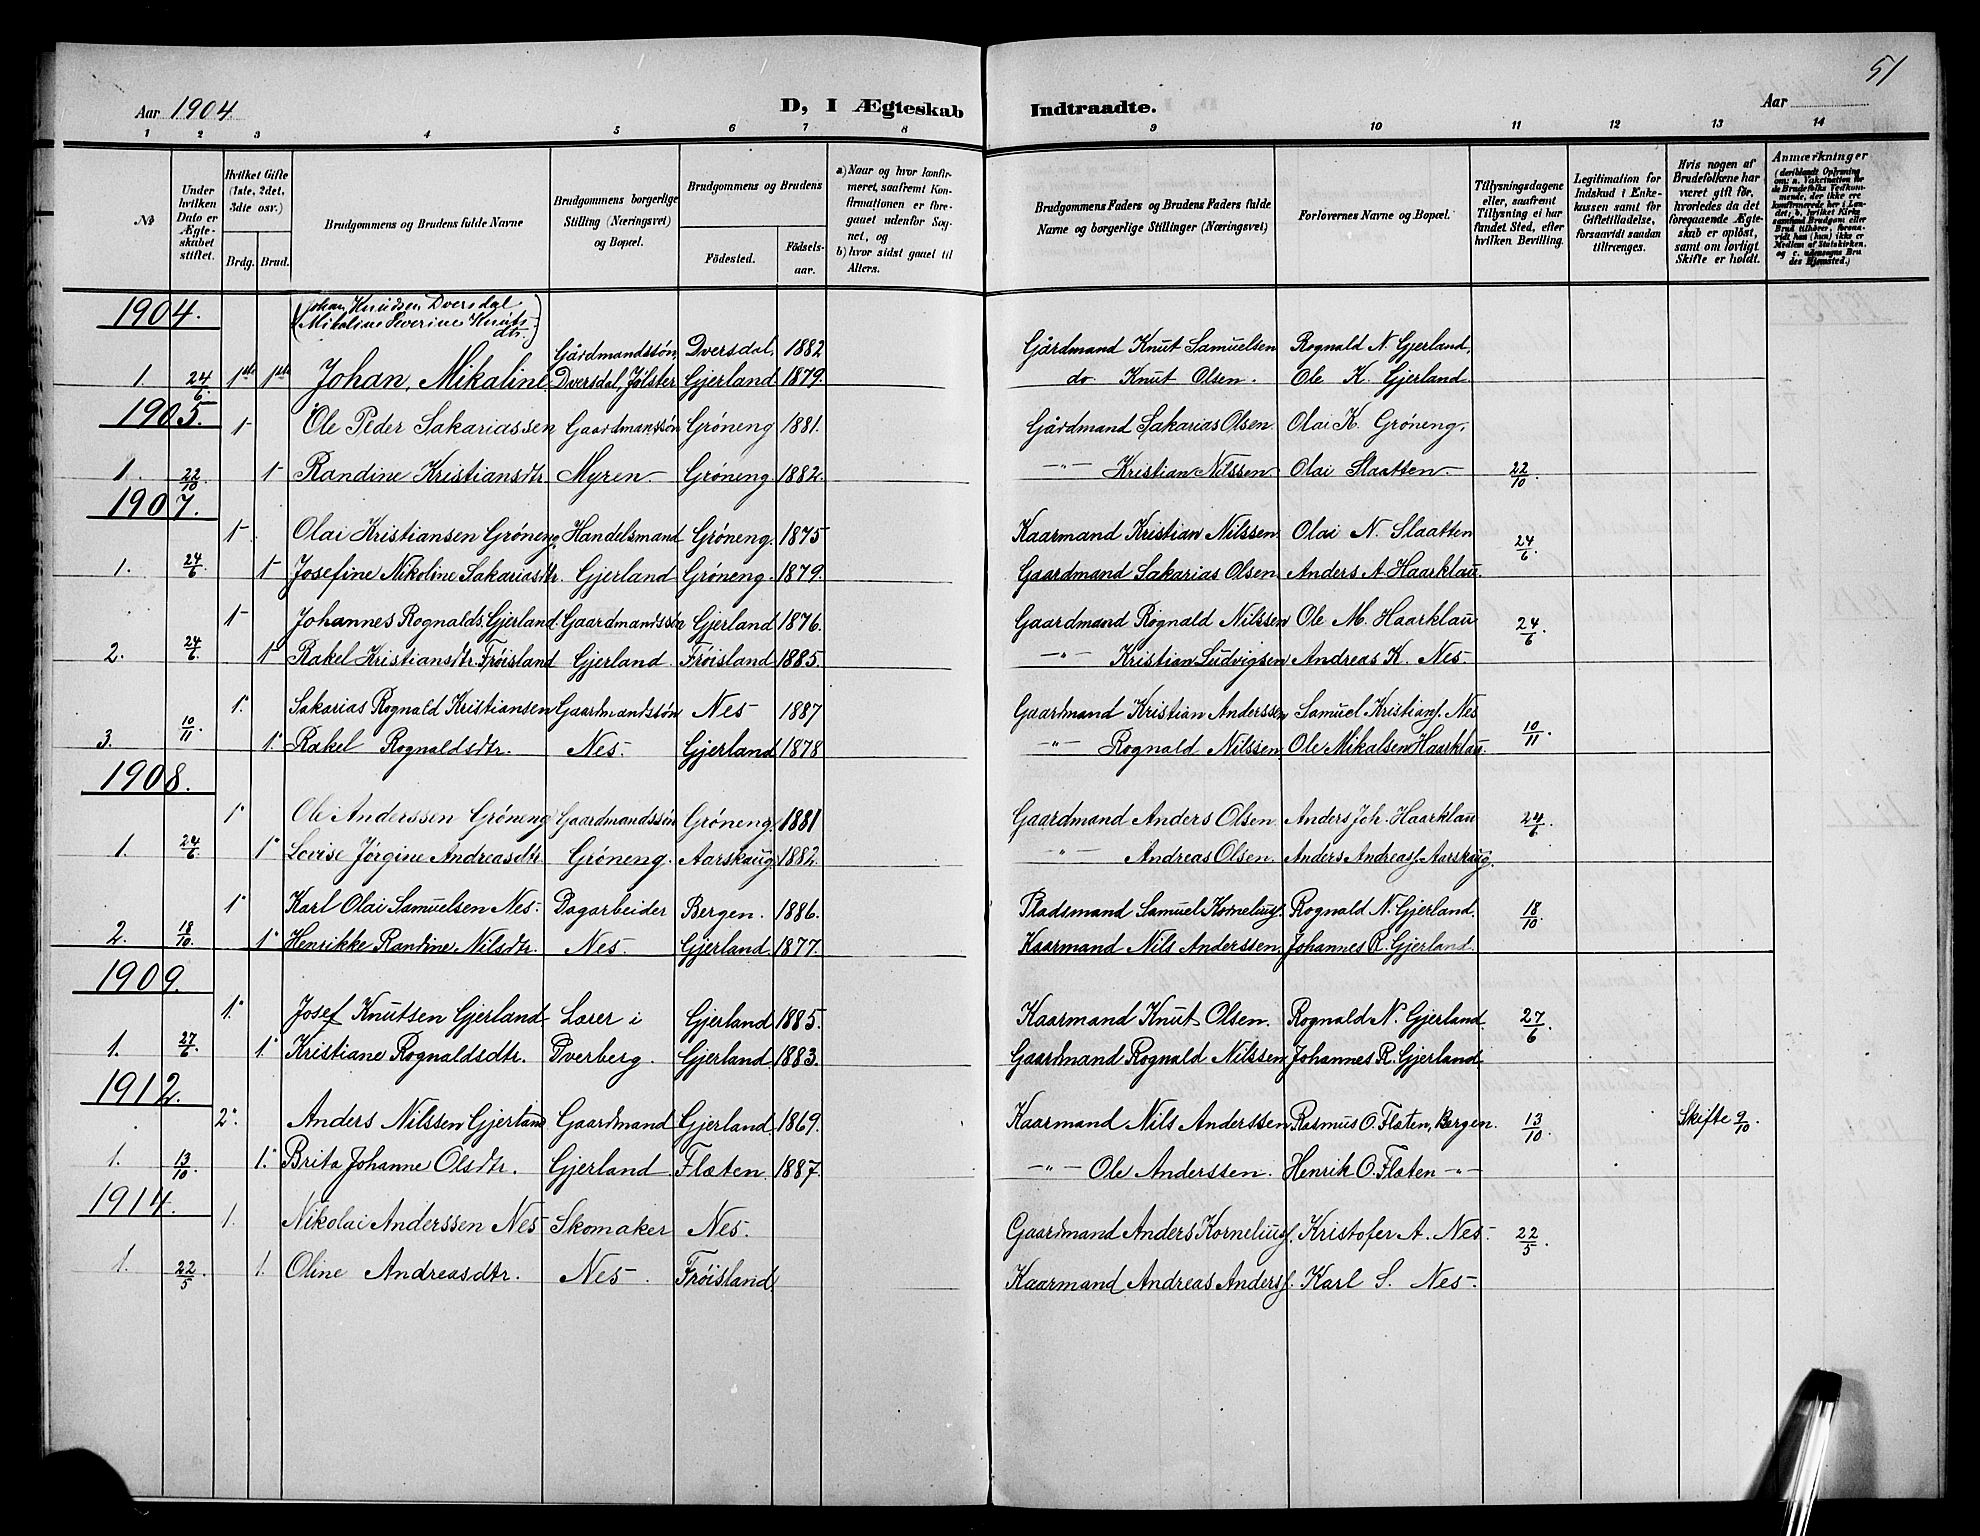 51
Aar 1904 D, I Ægteskab Indtraadte. Aar
1 2 3 4 5 6 7 8 9 10 11 12 13 14
No
Under hvilken Dato er Ægteskabet stiftet.
Hvilket Gifte (1ste, 2det, 3die osv.)
Brdg. Brud.
Brudgommens og Brudens fulde Navne
Brudgommens borgerlige Stilling (Næringsvei) og Bopæl.
Brudgommens og Brudens
Fødested. Fødselsaar.
a) Naar og hvor konfirmeret, saafremt Konfirmationen er foregaaet udenfor Sognet, og
b) hvor sidst gaaet til Alters.
Brudgommens Faders og Brudens Faders fulde Navne og borgerlige Stillinger (Næringsvei)
Forlovernes Navne og Bopæl.
Tillysningsdagene eller, saafremt Tillysning ei har fundet Sted, efter hvilken Bevilling.
Legitimation for Indskud i Enkekassen samt for Giftetilladelse, forsaavidt saadan tiltrænges.
Hvis nogen af Brudefolkene har været gift før, hvorledes da det foregaaende Ægteskab er opløst, samt om lovligt Skifte er holdt.
Anmærkninger (deriblandt Oplysning om: a. Vakcination for de Brudefolks Vedkommende, der ikke ere konfirmerede her i Landet; b. hvilket Kirkesamfund Brudgom eller Brud tilhører, forsaavidt han (hun) ikke er Medlem af Statskirken, og c. udensogns Brudes Hjemsted.)
1904. (Johan Knudsen Dversdal
Mikaline Severine Knuts-
dtr.)
Gårdmandssøn, Dversdal, 1882 Gårdmand Knut Samuelsen Rognald N. Gjerland,
1. 24/6 1ste 1ste Johan, Mikaline Dversdal, Jølster Gjerland 1879. do Knut Olsen. Ole K. Gjerland.
1905.
1- Ole Peder Sakariassen Gaardmanssøn Grøneng 1881. Gårdmand Sakarias Olsen Olai K. Grøneng,
1. 22/10 1- Randine Kristiansdtr. Myren- Grøneng 1882. -"- Kristian Nilssen Olai Slaatten- 22/10
1907.
1- Olai Kristiansen Grøneng, Handelsmand Grøneng. 1875 Kaarmand Kristian Nilssen Olai N. Slaatten 24/6
1. 24/6 1- Josefine Nikoline Sakariasdtr. Gjerland Grøneng. 1879. Gaardmand Sakarias Olsen Anders A Haarklau.
1- Johannes Rognalds. Gjerland. Gaardmandssøn Gjerland 1876. Gaardmand Rognald Nilssen Ole M. Haarklau 24/6.
2. 24/6 1- Rakel Kristiansdtr. Frøisland Gjerland. Frøisland 1885. -"- Kristian Ludvigsen Andreas K. Nes.
1. Sakarias Rognald Kristiansen Gaardmandssøn Nes 1887 Gaardmand Kristian Anderssen Samuel Kristians. Nes 10/11.
3. 10/11 1. Rakel Rognaldsdtr. Nes. Gjerland 1878 -"- Rognald Nilssen Ole Mikalsen Haarklau.
1908.
1. Ole Anderssen Grøneng Gaardmandssøn Grøneng. 1881 Gaardmand Anders Olsen Anders Joh. Haarklau 24/6.
1. 24/6 1. Lovise Jørgine Andreasdtr. Grøneng. Aarskaug. 1882. -"- Andreas Olsen. Anders Andreas. Aarskaug.
1. Karl Olai Samuelsen Nes. Dagarbeider Bergen. 1886. Pladsmand Samuel Kornelius. Rognald N. Gjerland. 18/10.
2. 18/10. 1. Henrikke Randine Nilsdtr. Nes. Gjerland. 1877. Kaarmand Nils Anderssen, Johannes R. Gjerland.
1909.
1. Josef Knutsen Gjerland Lærer i Gjerland 1885. Kaarmand Knut Olsen. Rognald N. Gjerland. 27/6.
1. 27/6 1. Kristiane Rognaldsdtr. Dverberg. Gjerland. 1883. Gaardmand Rognald Nilssen, Johannes R. Gjerland
1912.
2. Anders Nilssen Gjerland Gaardmand Gjerland. 1869. Kaarmand Nils Anderssen Rasmus O. Flaten, Bergen. 13/10. Skifte 9/10.
1. 13/10 1. Brita Johanne Olsdtr. Gjerland Flaten. 1887. -"- Ole Anderssen. Henrik O. Flaten -"-
1914.
1. Nikolai Anderssen Nes Skomaker Nes. Gaardmand Anders Kornelius. Kristofer A. Nes. 22/5.
1. 22/5. 1. Oline Andreasdtr. Nes. Frøisland Kaarmand Andreas Anders. Karl S. Nes.